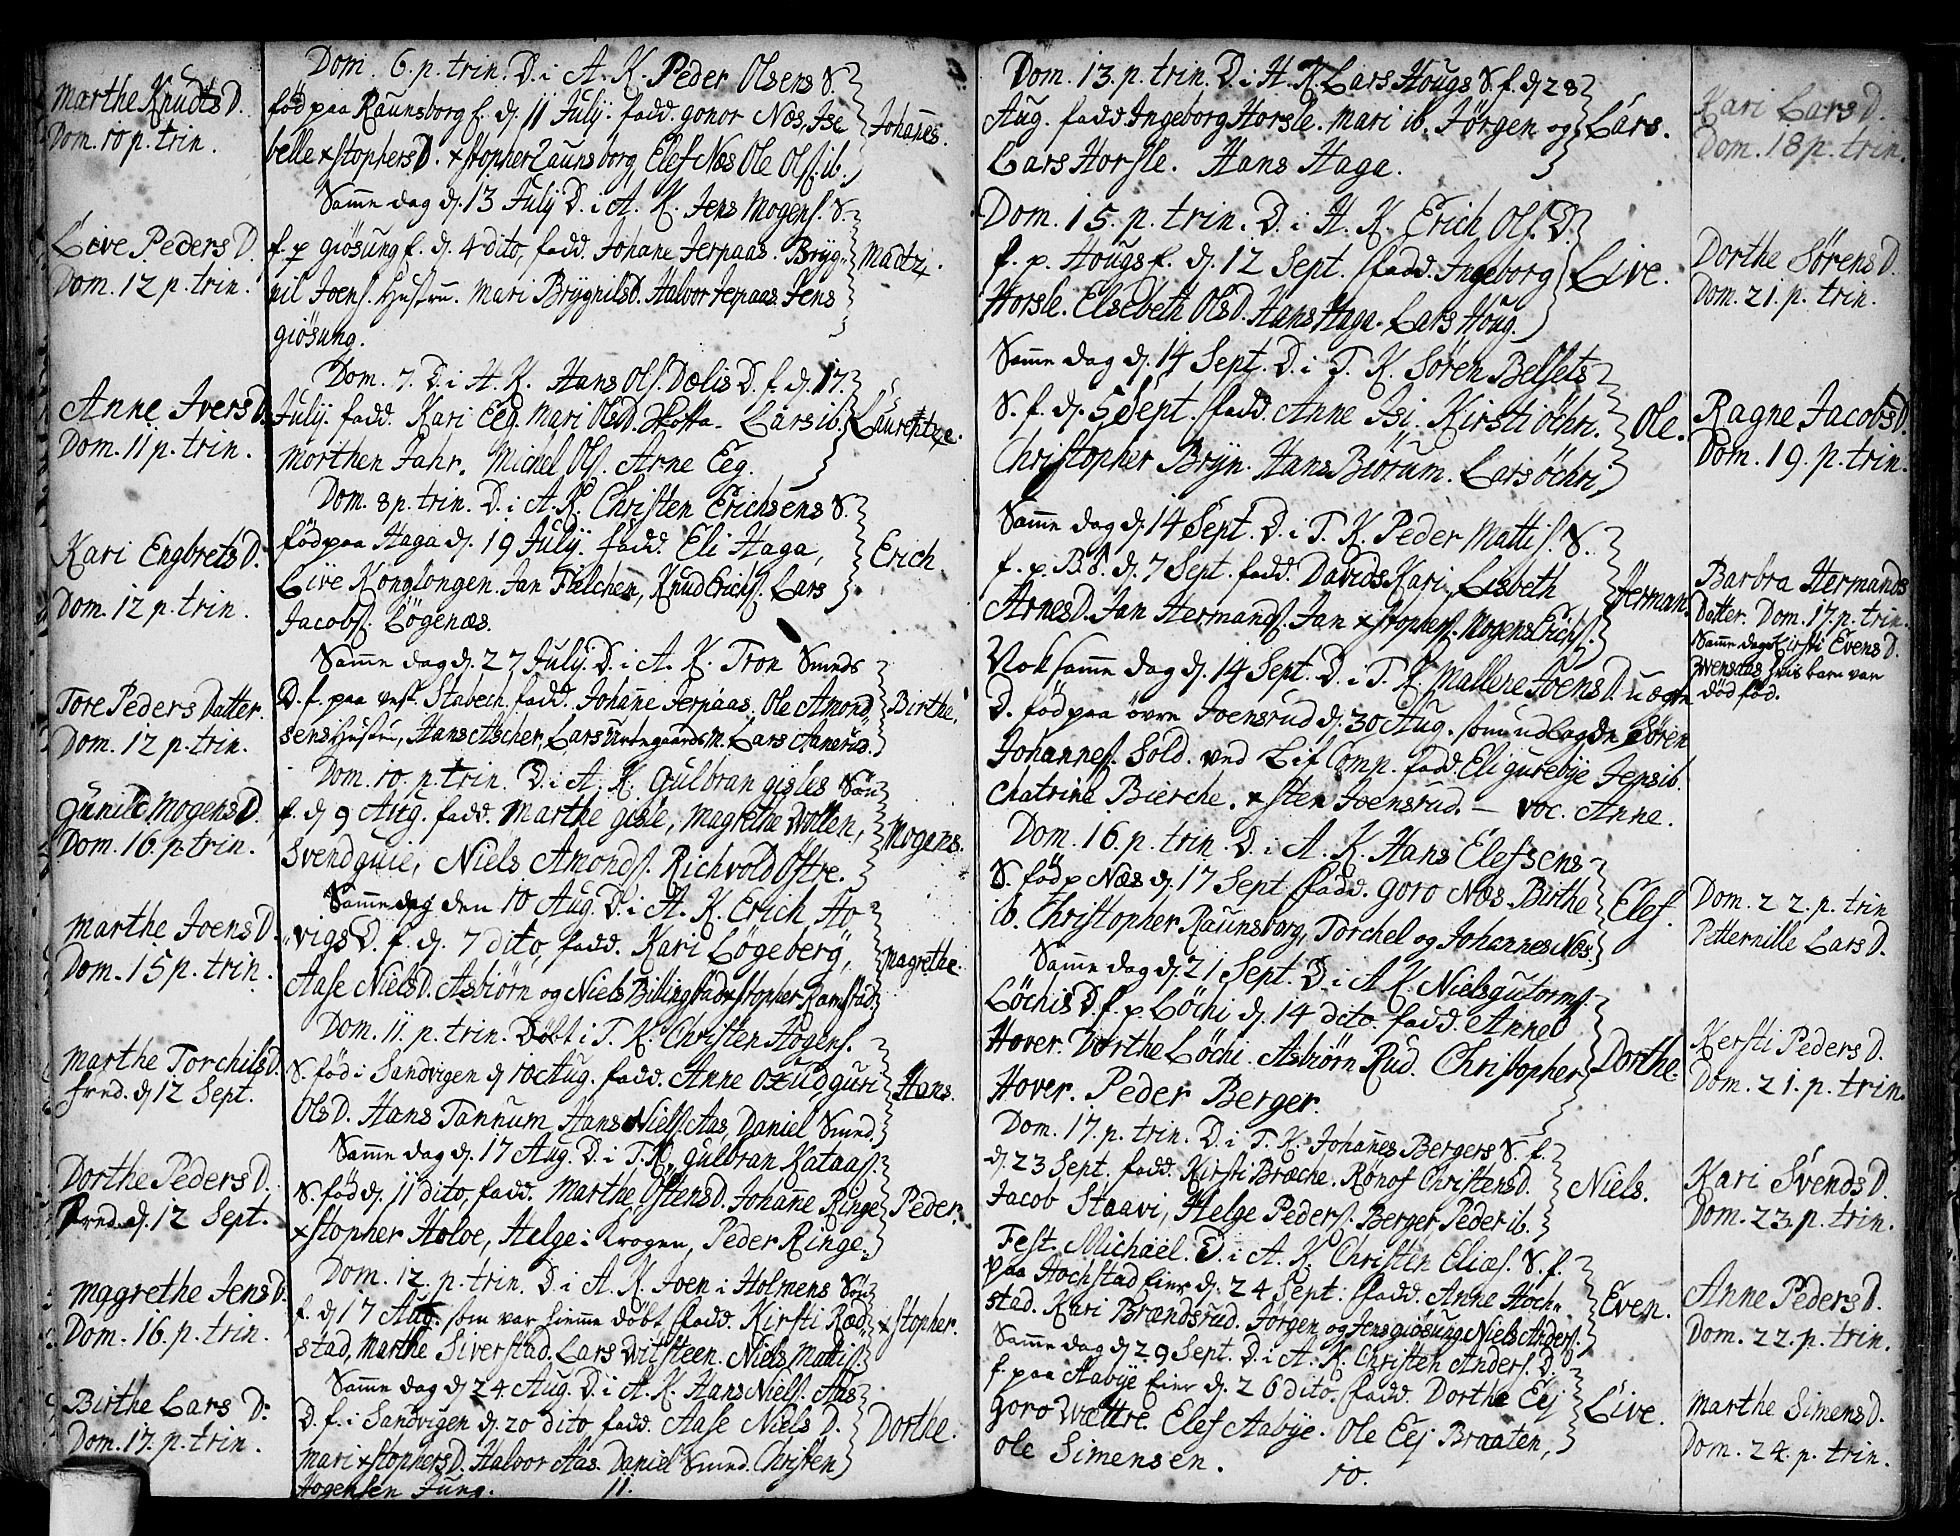 Marthe Knudts D.
Dom. 10 p. trin.
Live Peders D.
Dom. 12 p. trin.
Anne Ivers D.
Dom. 11 p. trin.
Kari Engbrets D.
Dom. 12 p. trin.
Tore Peders Datter.
Dom. 12 p. trin.
Gunild Mogens D.
Dom. 16. p. trin.
Marthe Joens D.
Dom. 15 p. trin.
Marthe Torchils D.
fred. d. 12 Sept.
Dorthe Peders D.
fred. d. 12 Sept.
Magrethe Jens D.
Dom. 16. p. trin.
Birthe Lars D.
Dom. 17. p. trin.
Dom. 6. p. trin. D. i A. K. Peder Olsens S.
fød paa Raunsborg f. d. 11 July. fadd. Gonor Næs, Ise
belle xstophers D. xstopher Raunsborg, Elef Næs Ole Ols. ib.
Johañes.
Same dag d. 13 July D. i A. K. Jens Mogens. S.
f. p giøsung f. d. 4 dito, fadd. Johane Jerpaas. Bryg,,
nil Joens. Hustru. Mari Brygnils D. Halvor Jerpaas. Jens
giøsung.
Madtz.
Dom. 7. D. i A. K. Hans Ols. Dælis D. f. d. 17.
July. fadd. Kari Eeg. Mari Ols D. Skotta. Lars ib.
Morthen Jahr. Michel Ols. Arne Eeg.
Laurentze.
Dom. 8 p. trin. D. i A. K. Christen Erichsens S.
fød paa Haga d. 19 July. fadd. Eli Haga,
Live Konglongen. Jan Fælchen, Knud Erichs. Lars
Jacobs. Løgenæs.
Erich
Same dag d. 27 July. D. i A. K. Tron Smeds
D. f. paa vest. Stabech. fadd. Johañe Jerpaas. Ole Amond,
sens Hustru, Hans Ascher, Lars Urtegaards M. Lars Anneruds.
Birthe.
Dom. 10. p. trin. D. i A. K. Gulbran gisles Søn
f. d 9 Aug. fadd. Marthe gisle, Magrethe Wollen,
Svend guie, Niels Amonds. Richvold Øftre.
Mogens.
Same dag den 10 Aug. D. i A. K. Erich Hø,,
vigs D. f. d. 7 dito, fadd. Kari Løgeberg,
Aase Niels D. Asbiørn og Niels Billingstad xstopher Ramstad
Magrethe.
Dom. 11. p. trin. Døbt i T. K. Christen Hogens.
S. fød i Sandvigen d 10 Aug. fadd. Anne guri
Ols D. Hans Tannum, Hans Niels. Aas, Daniel Smed.
Hans.
Same dag d. 17 Aug. D. i T. K. gulbran Kataas.
S. fød d. 11 dito, fadd. Marthe Østens D. Johañe Ringe
xstopher Holoe, Helge i Krogen, Peder Ringe.
Peder.
Dom. 12. p. trin. D. i A. K. Joen i Holmens Søn
f. d 17 Aug. som var hiemme døbt fadd. Kirsti Rød
stad, Marthe Siverstad. Lars Witsteen. Niels Mattis.
xstopher.
Same dag d 24 Aug. D. i A. K. Hans Niels. Aas
D. f. i Sandvigen d. 20 dito, fadd. Aase Niels D.
Mari xstophers D. Halvor Aas. Daniel Smed. Christen
Hogensen Jung.
Dorthe.
11.
Dom. 13. p. trin. D. i H. K. Lars Hougs S. f. d 28
Aug. fadd Ingeborg Horsle. Mari ib. Jørgen og
Lars Horsle. Hans Haga.
Lars.
Dom. 15. p. trin. D. i H. K. Erich Ols. D.
f. p. Hougs f. d. 12 Sept. fadd. Ingeborg
Horsle. Elsebeth Ols D. Hans Haga. Lars Houg.
Live.
Same dag d. 14 Sept. D. i T. K. Søren Belsets
S. f. d. 5 Sept. fadd. Anne Isi. Kirsti Øchri.
Christopher Bryn. Hans Biørum. Lars Øchri,
Ole.
Same dag d. 14 Sept. D. i T. K. Peder Mattis. S.
f. p. B. S. d. 7 Sept. fadd. Davids Kari, Lisbeth
Arnes D. Jan Hermands. Jan xstophers. Mogens Erichs.
Herman.
Nok same dag d. 14 Sept. D. i T. K Mallene Joens D. uægte
D. fød paa øvre Joensrud d. 30 Aug. som udlagde Søren
Johannes. Sold. ved Lif Comp. fadd. Eli gurebye Jens ib.
Chatrine Bierche. xsten Joensrud. — voc. Anne.
Dom. 16. p. trin. D. i A. K. Hans Elefsens
S. fød p Næs d. 17 Sept fadd. Goro Næs. Birthe
ib. Christopher Raunsborg, Torchel og Johannes Næs.
Elef.
Same dag d. 21 Sept. D. i A. K. Niels gutorms.
Løchis D. f. p Løchi d. 14 dito. fadd. Anne
Hover. Dorthe Løchi. Asbiørn Rud. Christopher
Hover. Peder Berger.
Dorthe.
Dom. 17. p. trin. D. i T. K. Johañes Bergers S. f.
d. 23 Sept. fadd. Kirsti Bræche. Rønof Christens D.
Jacob Staavi, Helge Peders. Berger Peder ib.
Niels.
Fest. Michael. D. i A. K. Christen Elias. S. f.
paa Høchstad Eier d. 24 Sept: fadd. Anne Høch,,
stad. Kari Brændsrud. Jørgen og Jens giøsung Niels Anders.
Even.
Same dag d 29 Sept. D. i A. K. Christen Anders. D.
f. paa Aabye Eier d. 26 dito. fadd. Dorthe Eej
Goro Wættre. Elef Aabye. Ole Eej Braaten,
Ole Simensen.
Live.
10.
Kari Lars D.
Dom. 18 p. trin.
Dorthe Sørens D.
Dom. 21. p. trin.
Ragne Jacobs D.
Dom. 19. p. trin.
Barbra Hermands
Datter. Dom. 17. p. trin.
Same dag Kirsti Evens D.
hvis barn var
død fød.
Dom. 22. p. trin
Petternille Lars D.
Kersti Peders D.
Dom. 21. p. trin.
Kari Svends D.
Dom. 23. p. trin.
Anne Peders D.
Dom. 22. p. trin.
Marthe Simens D.
Dom. 24. p. trin.